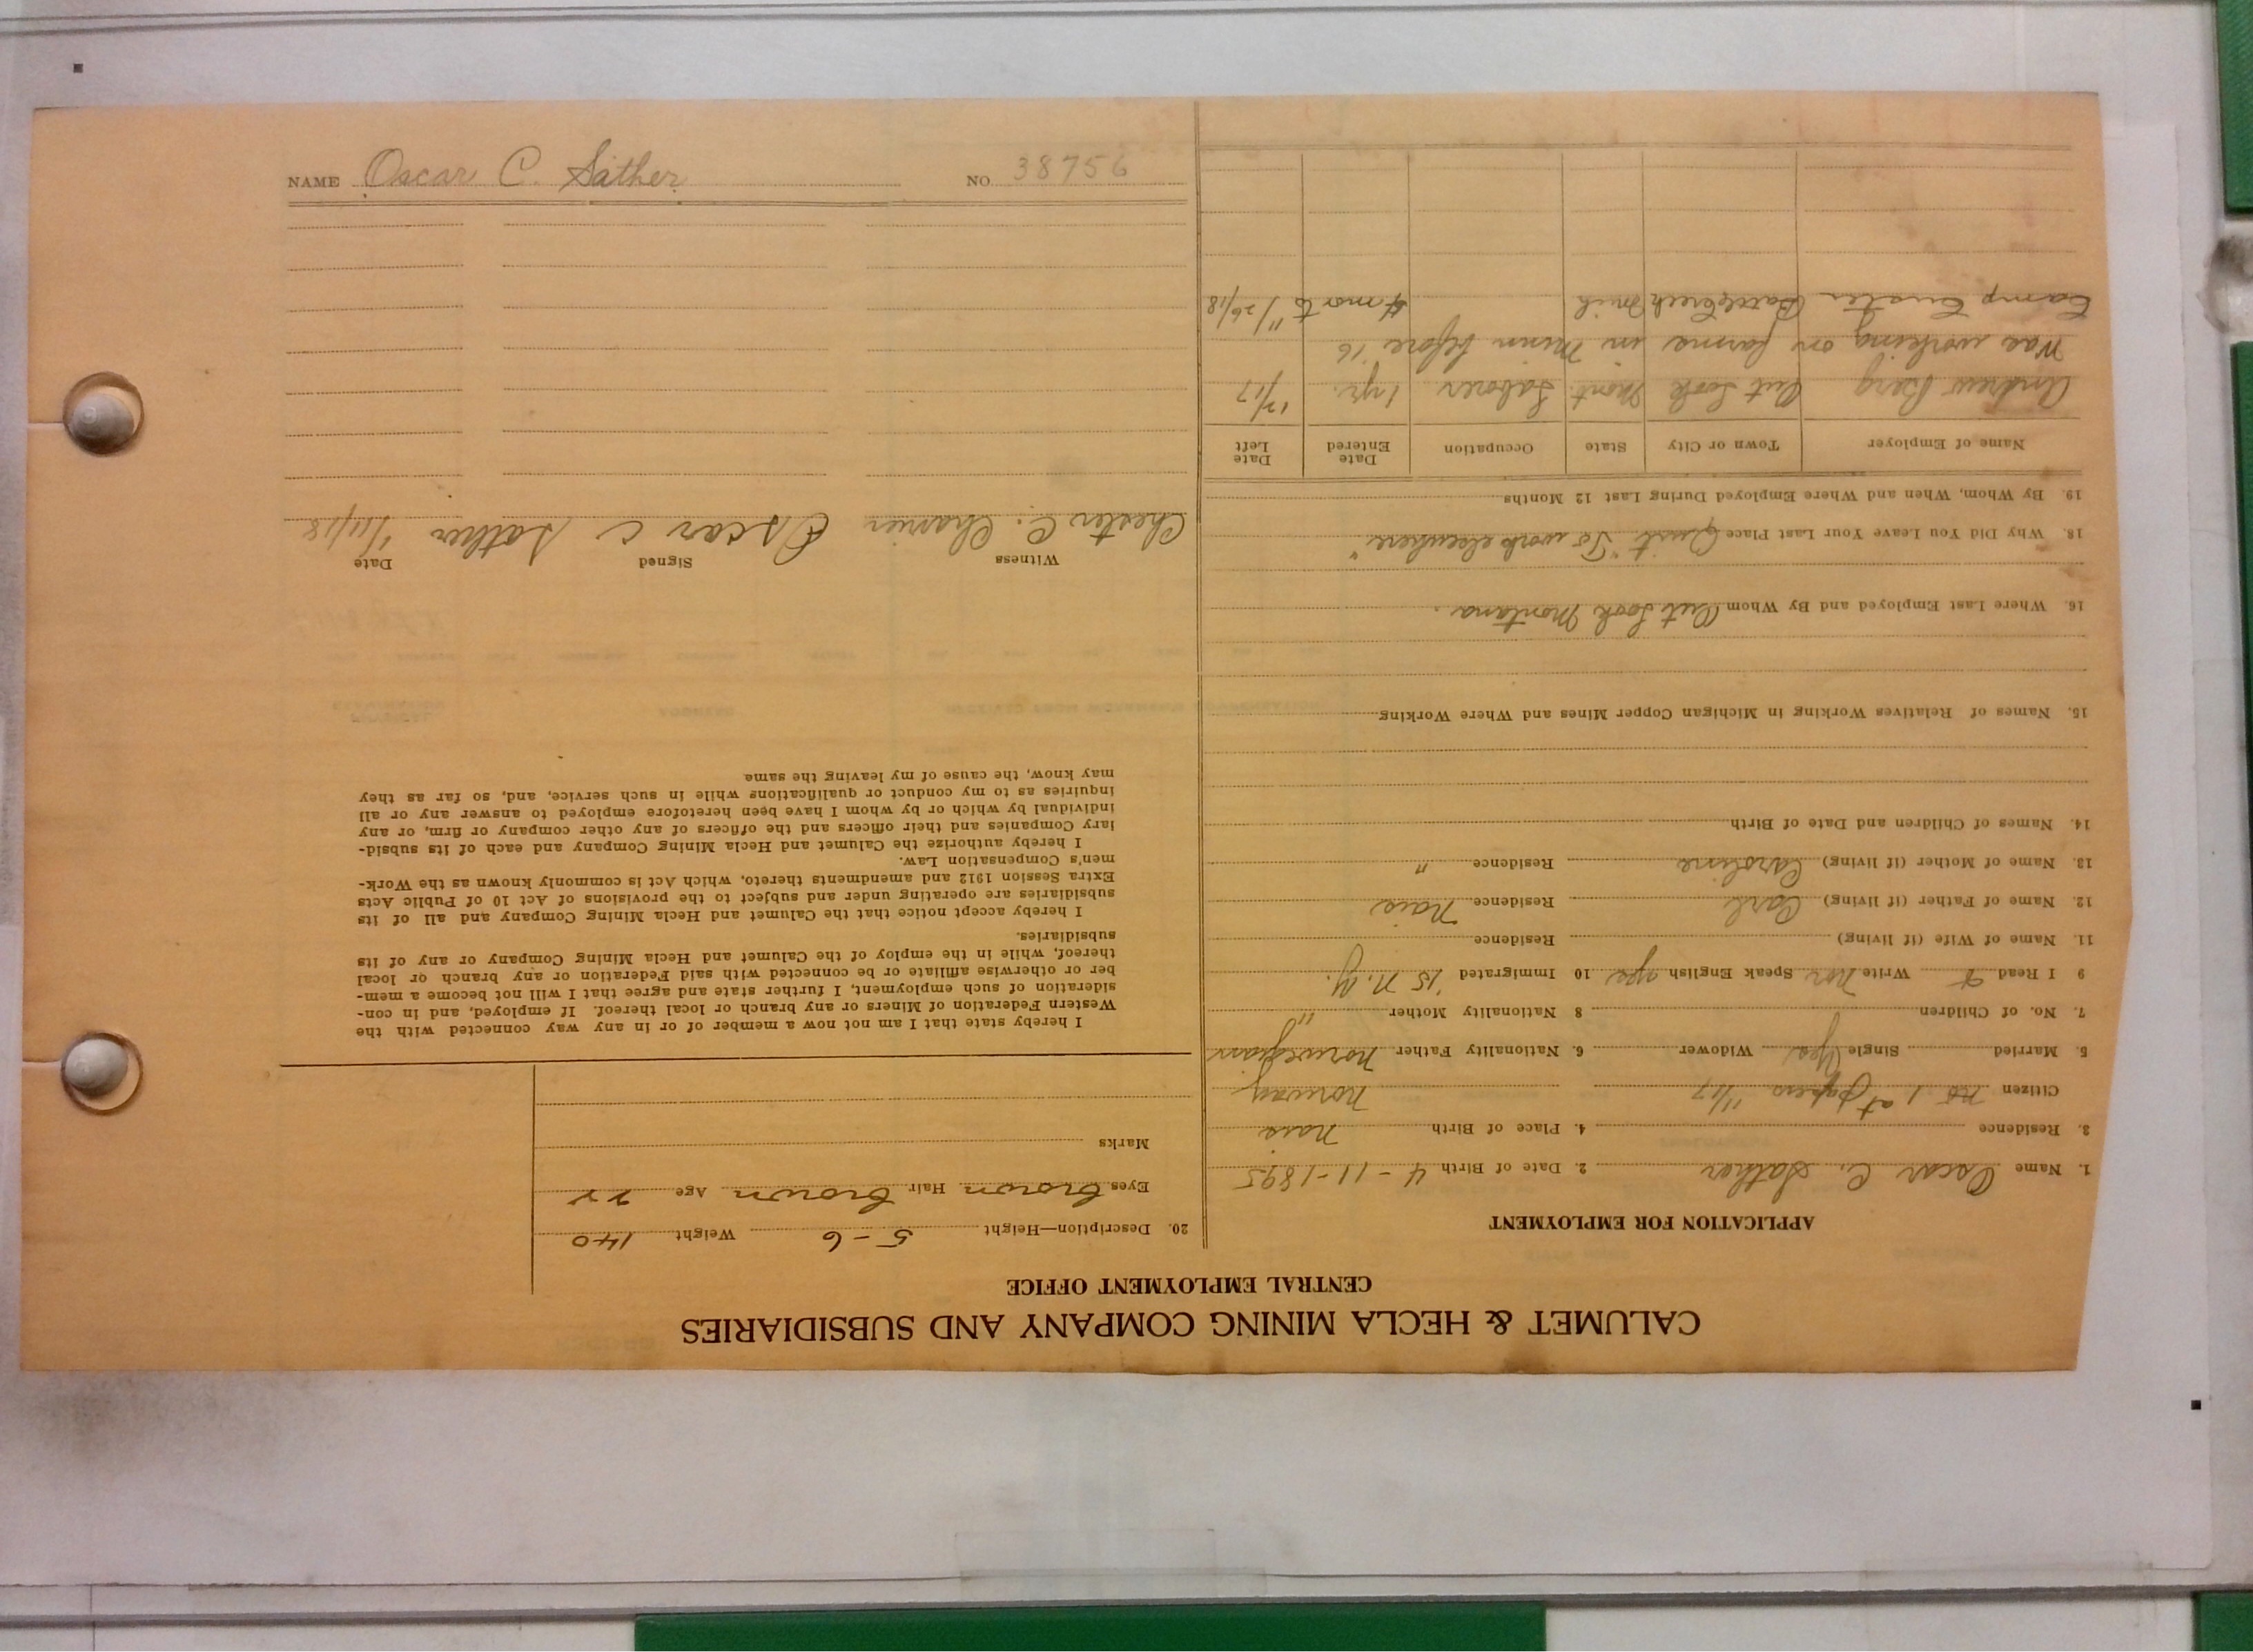 CALUMET & HECLA MINING COMPANY AND SUBSIDIARIES
CENTRAL EMPLOYMENT OFFICE
APPLICATION FOR EMPLOYMENT
1. Name Oscar C. Sather 2. Date of Birth 4-11-1895
3. Residence 4. Place of Birth Nais
Citizen no 1st papers 11/17 Norway
5. Married Single Yes Widower 6. Nationality Father Norwegian
7. No. of Children 8 Nationality Mother "
9 I Read & Write Nor Speak English yes 10 Immigrated '15 N.Y.
11. Name of Wife (if living) Residence
12. Name of Father (if living) Carl Residence Nais
13. Name of Mother (if living) Caroline Residence "
14. Names of Children and Date of Birth
15. Names of Relatives Working in Michigan Copper Mines and Where Working
16. Where Last Employed and By Whom Out Look Montana.
18. Why Did You Leave Your Last Place Quit "To work elsewhere"
19. By Whom, When and Where Employed During Last 12 Months
Name of Employer Town or City State Occupation Date Entered Date Left
Andrew Berg Out Look Mont. Laborer 1 yr. 12/17
Was working on farms in Minn before '16
Camp Custer Battle Creek Mich 4 mos to 11/26/18
20. Description—Height 5-6 Weight 140
Eyes brown Hair brown Age 22
Marks
I hereby state that I am not now a member of or in any way connected with the
Western Federation of Miners or any branch or local thereof. If employed, and in con-
sideration of such employment, I further state and agree that I will not become a mem-
ber or otherwise affiliate or be connected with said Federation or any branch or local
thereof, while in the employ of the Calumet and Hecla Mining Company or any of its
subsidiaries.
I hereby accept notice that the Calumet and Hecla Mining Company and all of its
subsidiaries are operating under and subject to the provisions of Act 10 of Public Acts
Extra Session 1912 and amendments thereto, which Act is commonly known as the Work-
men's Compensation Law.
I hereby authorize the Calumet and Hecla Mining Company and each of its subsid-
iary Companies and their officers and the officers of any other company or firm, or any
individual by which or by whom I have been heretofore employed to answer any or all
inquiries as to my conduct or qualifications while in such service, and, so far as they
may know, the cause of my leaving the same
Witness Signed Date
Chester C. Oscar C Sather 1/11/18
NAME Oscar C. Sather NO. 38756